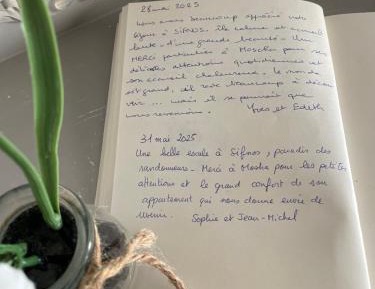 28 mai 2025
Nous avons beaucoup apprécié notre
séjour à SIFNOS, île calme et accueil-
lante - d'une grande beauté - Un
MERCI particulier à Moscha pour ses
délicates attentions quotidiennes et
son accueil chaleureux. Le monde
est grand, il reste beaucoup à décou
vrir ... mais il se pourrait que
nous revenions. Yves et Edith
31 mai 2025.
Une belle escale à Sifnos, paradis des
randonneurs - Merci à Mosha pour les petites
attentions et le grand confort de son
appartement qui nous donne envie de
revenir. Sophie et Jean-Michel